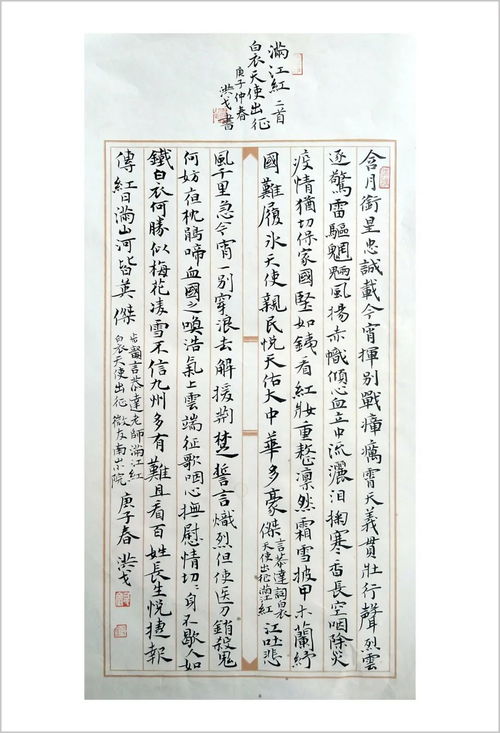 滿江紅 二首
白衣天使出征
庚子仲春
洪戈書
含月銜星忠誠載今宵揮別戰瘴癘霄天義貫壯行聲烈雲
逐驚雷驅魍魎風揚赤幟傾心血立中流灑泪掬寒香長空咽除災
疫情猶切保家國堅如鐵看紅妝重整凛然霜雪披甲木蘭紓
國難履冰天使親民悅天佑大中華多豪傑 言恭達詞白衣天使出征滿江紅 江吐悲
風千里急今宵一别穿浪去解援荆楚誓言熾烈但使医刀銷殺鬼
何妨夜枕鵑啼血國之喚浩氣上雲端征歌咽心撫慰情切〻身不歇人如
鐵白衣何勝似梅花凌雪不信九州多有難且看百姓長生悅捷報
傳紅日滿山河皆英傑 步韻言恭達老師滿江紅白衣天使出征 微友南 院 庚子春 洪戈